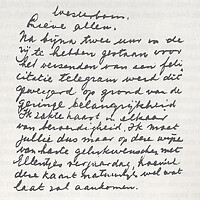 Westerbork.
Lieve allen.
Na bijna twee uur in de
rij te hebben gestaan voor
het verzenden van een feli
citatie telegram werd dit
geweigerd op grond van de
geringe belangrijkheid
Ik zakte haast in elkaar
van beroerdigheid. Ik moet
jullie dus maar op deze wijze
van harte gelukwenschen met
Ellentjes verjaardag, hoewel
deze kaart natuurlijk wel wat
laat zal aankomen.